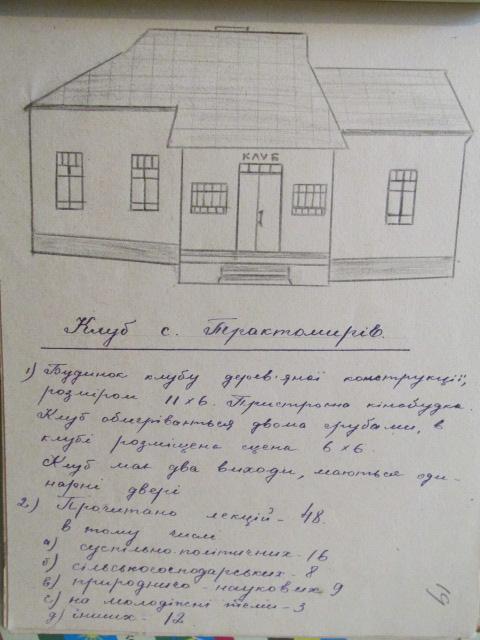 КЛУБ
Клуб с. Трактомирів.
1) Будинок клубу дерев'яної конструкції,
розміром 11×6. Пристроєна кінобудка.
Клуб обігрівається двома грубами, в
клубі розміщена сцена 6×6.
Клуб має два виходи, маються оди-
нарні двері
2) Прочитано лекцій - 48.
в тому числі
а) суспільно-політичних - 16
б) сільськогосподарських - 8
в) природничо-наукових 9
с) на молодіжні теми - 3
д) інших - 12
19